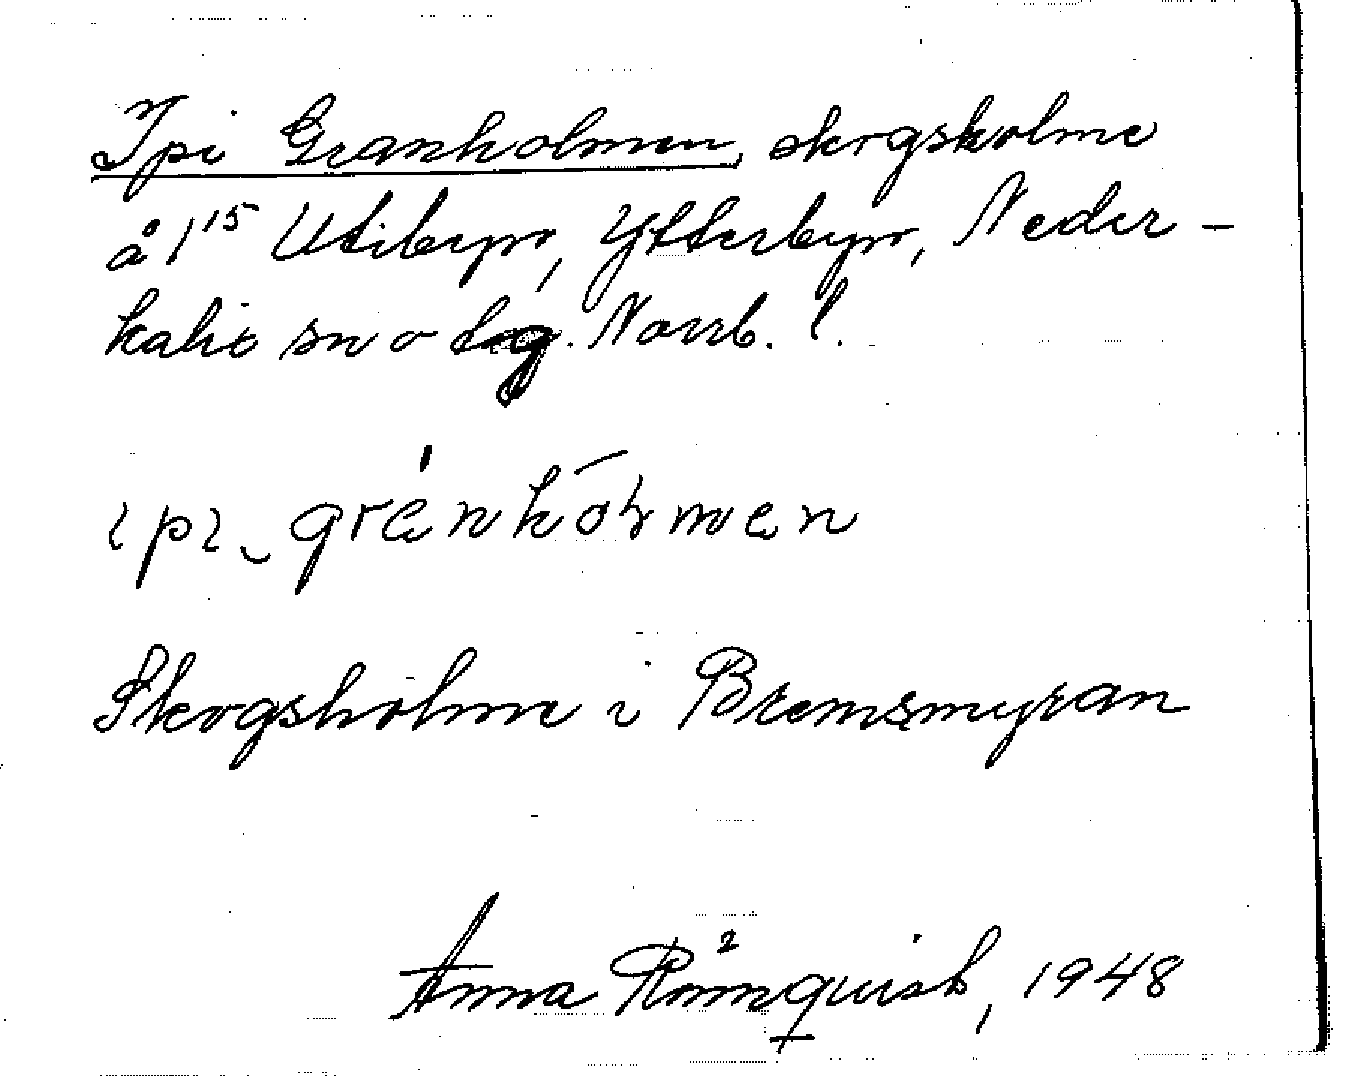 Ipi Granholmen, skogsholme
å 1¹⁵ Utibyn, Ytterbyn, Neder-
kalix sn o lag. Norrb. l.
ɩpɩ‿ gránhōɽmen
Skogsholme i Bremsmyran
Anna Rönnquist, 1948